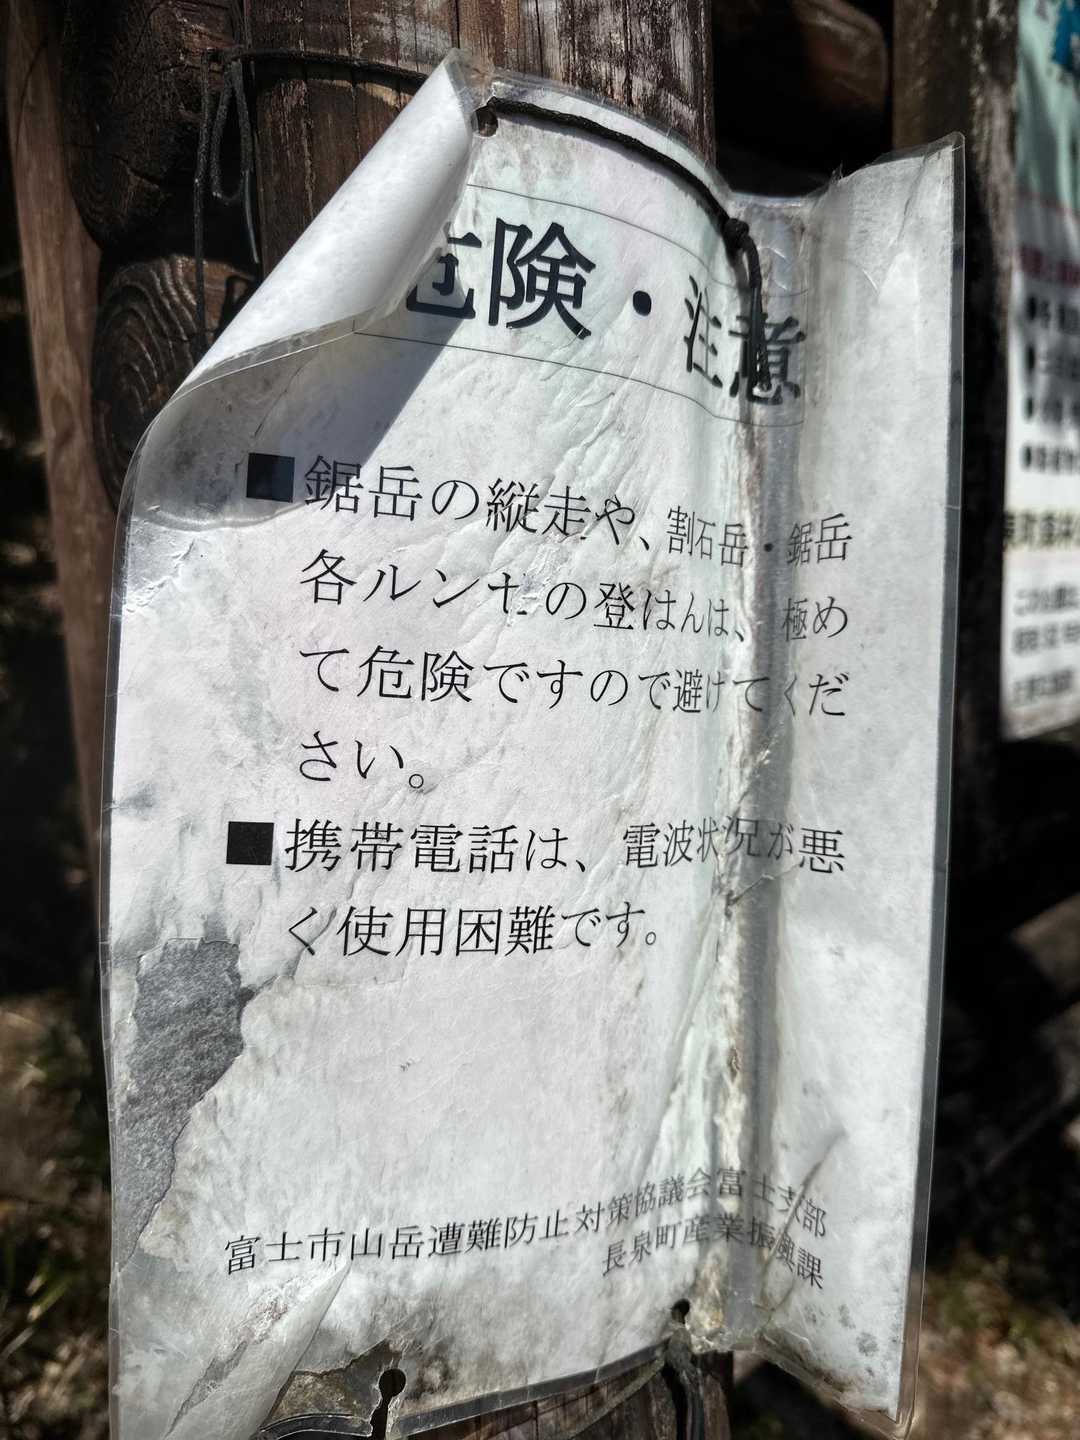 危険・注意
■鋸岳の縦走や、割石岳・鋸岳
各ルンゼの登はんは、極め
て危険ですので避けてくだ
さい。
■携帯電話は、電波状況が悪
く使用困難です。
富士市山岳遭難防止対策協議会富士支部
長泉町産業振興課